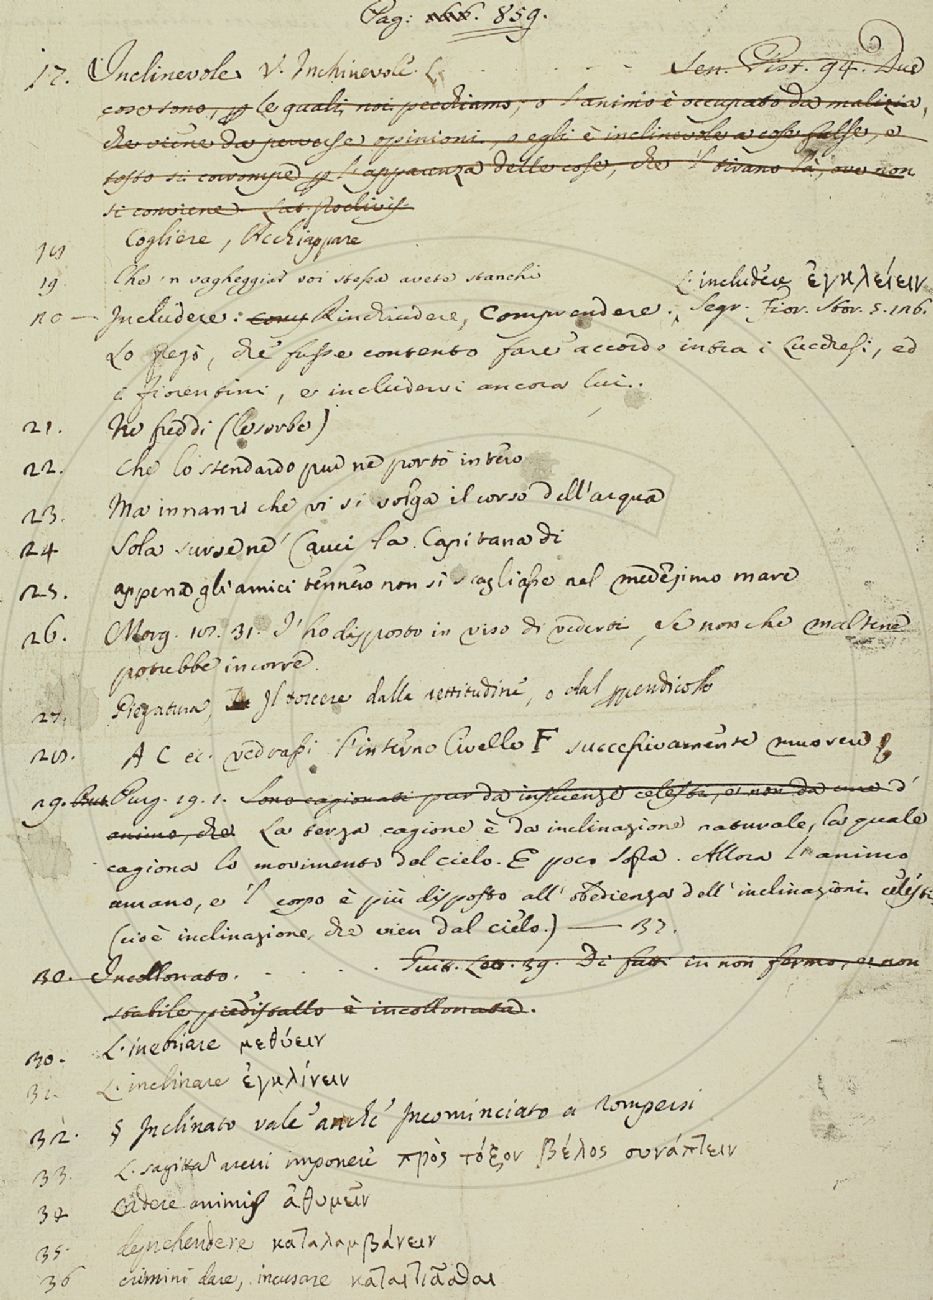 Pag: 866. 859.
17. Inclinevole V. Inchinevole L. Sen. Pist. 94. Due
cose sono, p le quali noi pecchiamo; o l'animo è occupato da malizia,
che viene da perverse opinioni, o egli è inclinevole a cose false, e
tosto si corrompe p l'apparenza delle cose, che 'l tirano là, ove non
si conviene. Lat. proclivis
18 Cogliere, Acchiappare
19 Che 'n vagheggiar voi stessa avete stanchi
L. includere ἐγκλείειν
20 — Includere: Rinchiudere, Comprendere. Segr. Fior. Stor. 5. 126.
Lo pregò, che fusse contento fare accordo intra i Lucchesi, ed
i Fiorentini, e includervi ancora lui.
21. Ne freddi (le sorbe)
22. Che lo stendardo pur ne portò intero
23. Ma innanzi che vi si volga il corso dell'acqua
24 Sola sursene (avei la Capitana di
25. appena gli amici tennero non si scagliasse nel medesimo mare
26. Morg. 18. 31. I' ho disposto in viso di vederti, se non che mal tene
potrebbe incorre.
27. Piegatura, Il torcere dalla rettitudine, o dal ppendicolo
28. A C ec. vedrassi l'interno livello F successivamente muovere
29. But. Purg. 19. 1. Sono cagionati pur da influenze celesti, e non da cura d'
animo, che La terza cagione è da inclinazione naturale, la quale
cagiona lo movimento del cielo. E poco sotto. Allora l'animo
umano, e 'l corpo è più disposto all'obedienza dell'inclinazioni celesti
(cioè inclinazione, che vien dal cielo.) — 37.
30. Incollonato. Guitt. Lett. 39. Di fatti in non fermo, e non
stabile piedistallo è incollonata.
30. L. inebriare μεθύειν
31. L. inclinare ἐγκλίνειν
32. § Inclinato vale anche Incominciato a rompersi
33. L. sagittar arcui imponere πρὸς τόξον βέλος συνάπτειν
34 cadere animis ἀθυμεῖν
35. deprehendere καταλαμβάνειν
36 crimini dare, incusare καταιτιᾶσθαι